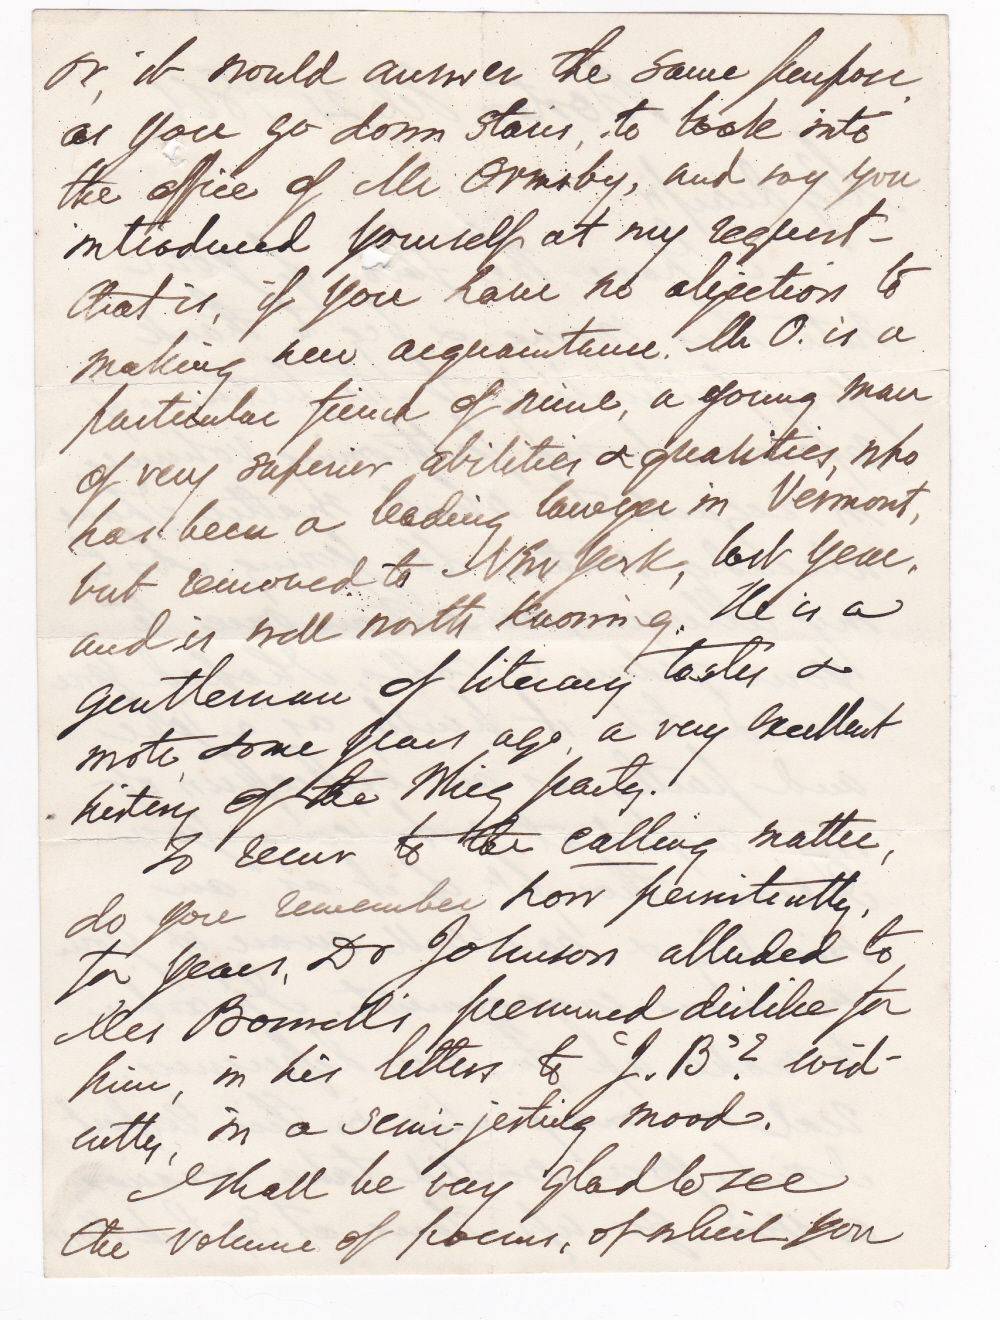 or, it would answer the same purpose,
as you go down stairs, to look into
the office of Mr Ormsby, and say you
introduced yourself at my request -
that is, if you have no objection to
making new acquaintance. Mr O. is a
particular friend of mine, a young man
of very superior abilities & qualities, who
has been a leading lawyer in Vermont,
but removed to New York, last year,
and is well worth knowing. He is a
gentleman of literary tastes &
wrote, some years ago, a very excellent
history of the Whig party.
To recur to the calling matter,
do you remember how persistently,
for years, Dr Johnson alluded to
Mrs Boswell's presumed dislike for
him, in his letters to "J. B"? evid-
ently, in a semi-jesting mood.
I shall be very glad to see
the volume of poems, of which you